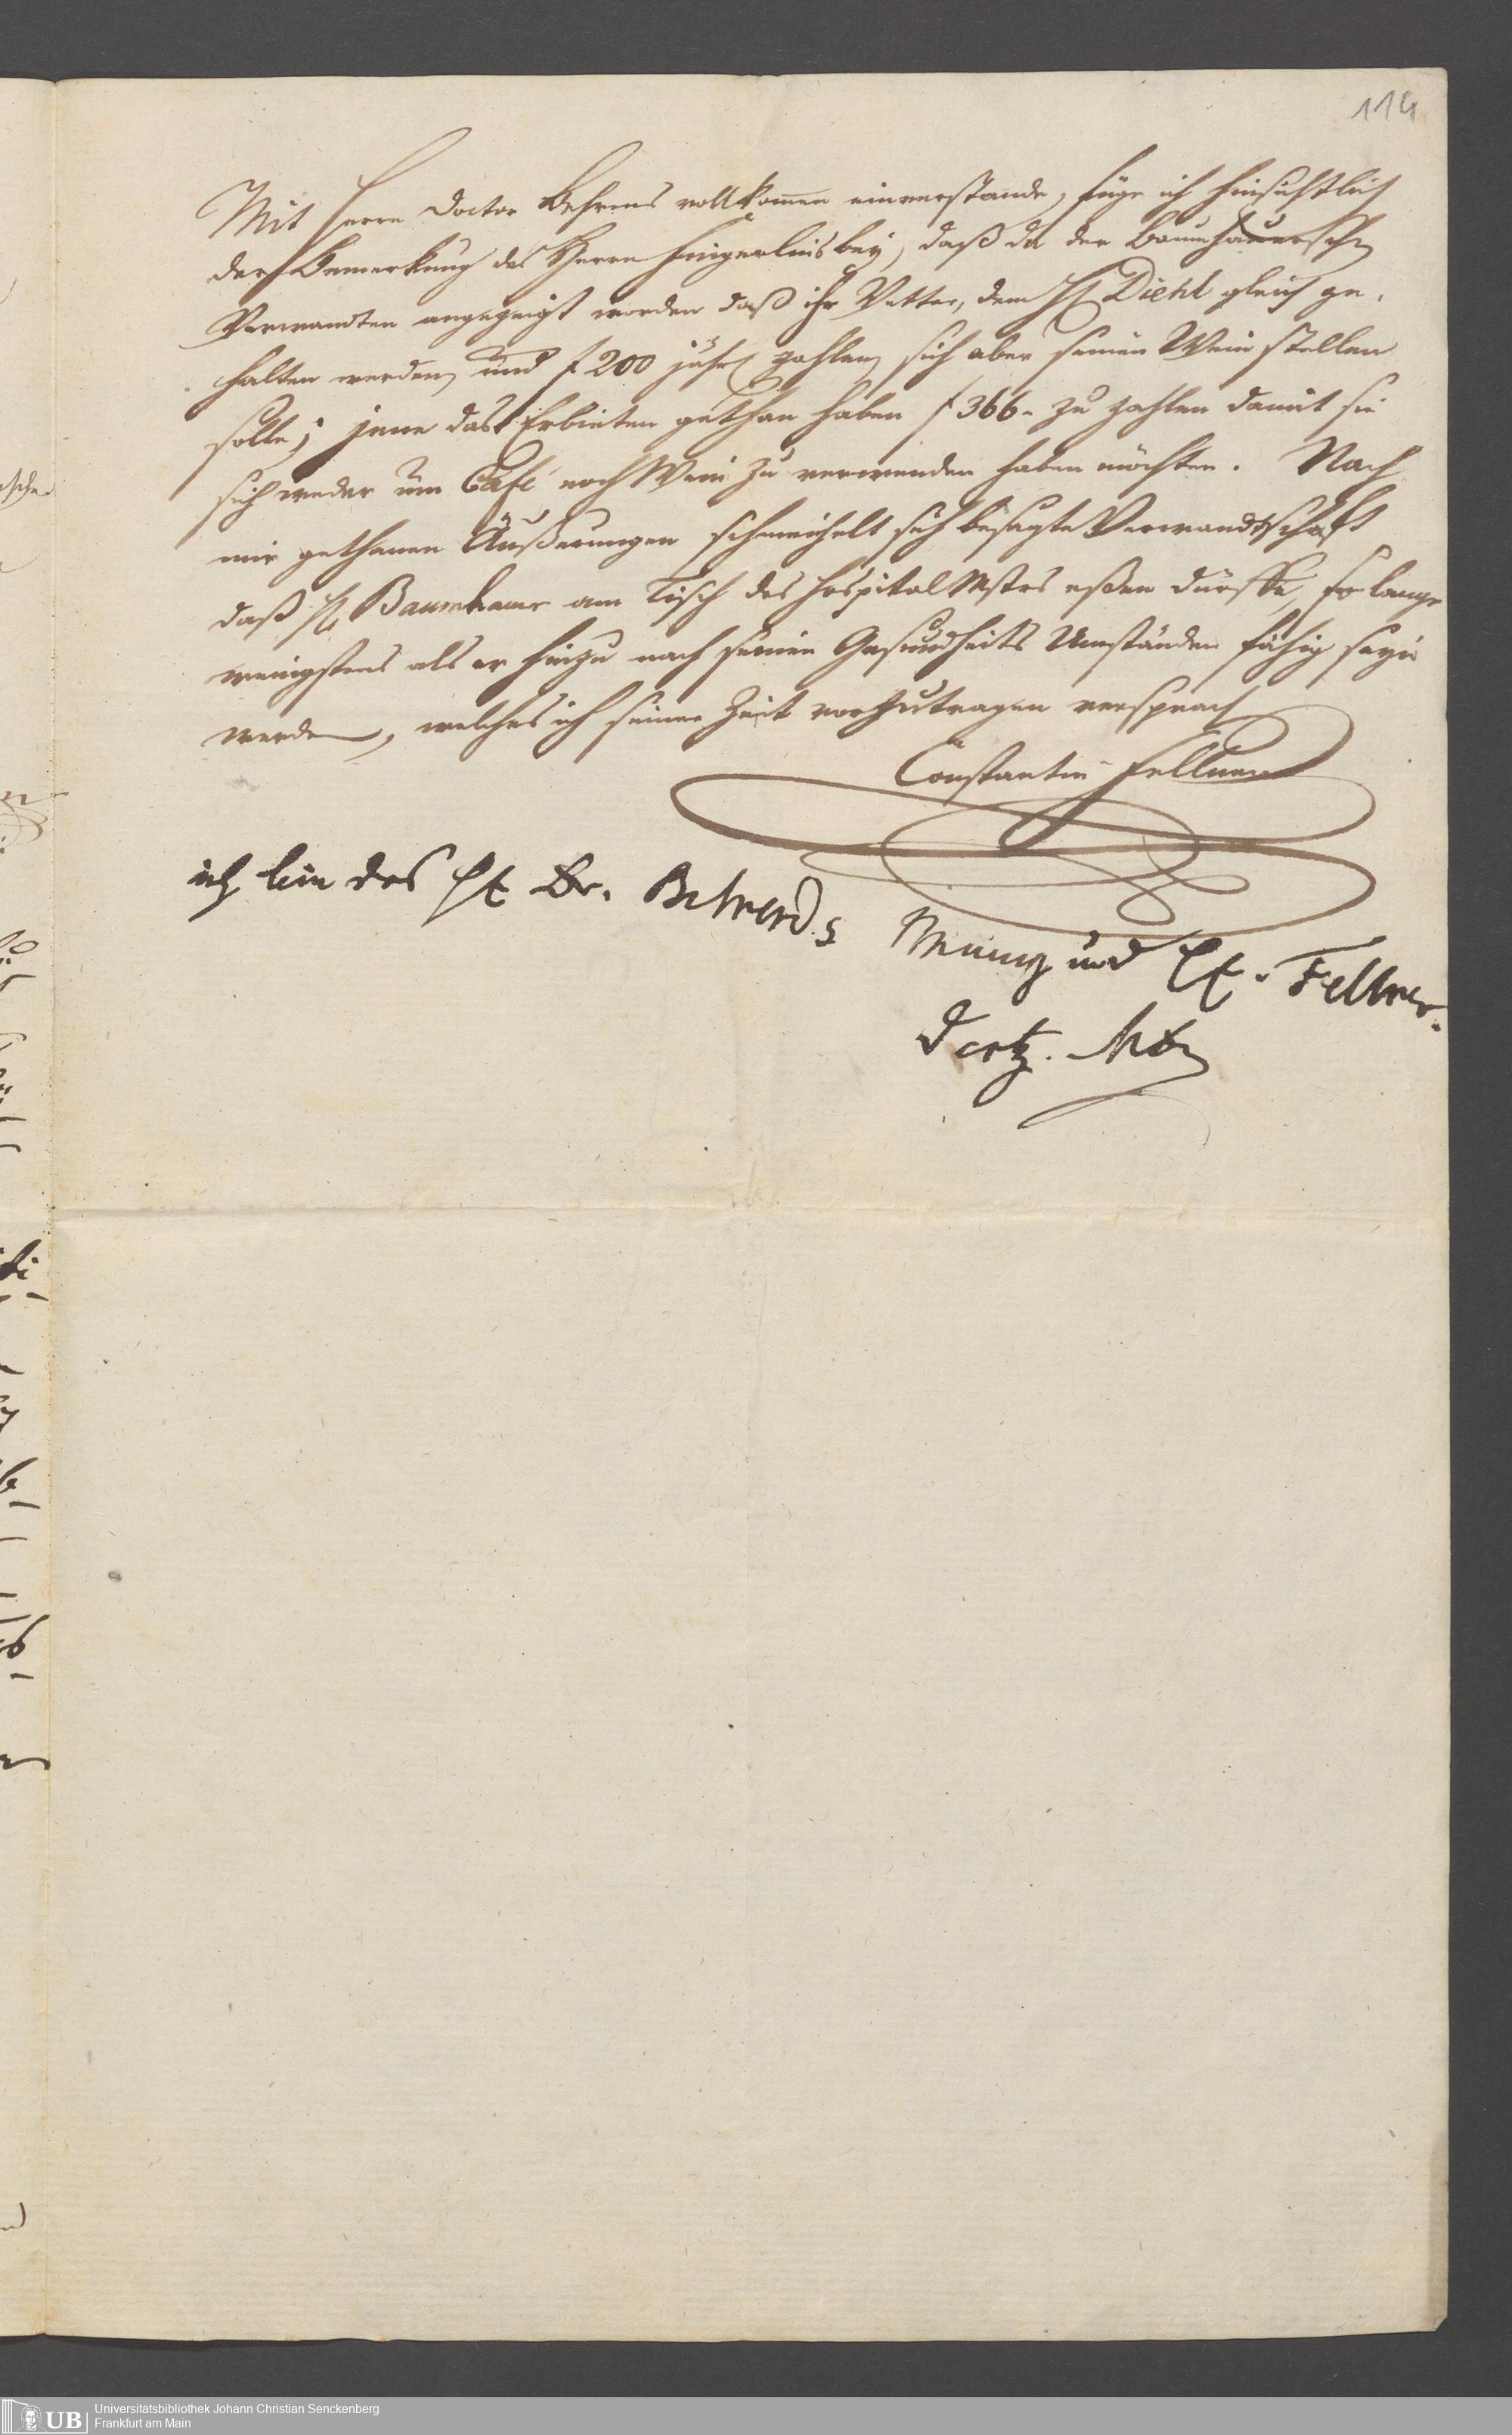 114
Mit Herrn Doctor Behrends vollkom̄en einverstanden, füge ich hinsichtlich
der Bemerkung des Herrn Fingerlins bey, daß da den Baumhauerschen
Verwandten angezeigt worden daß ihr Vetter, dem H Diehl gleich ge-
halten werden, und f 200 jährl zahlen, sich aber seinen Wein stellen
solle; jene das Erbieten gethan haben f 366- zu zahlen damit sie
sich weder um Café noch Wein zu verwenden haben möchten. Nach
mir gethanen Äußerungen schmeichelt sich besagte Verwandtschaft
daß H Baumhauer am Tisch des Hospital Mstrs eßen dürffe, so lange
wenigstens als er hinzu nach seinen Gesundheits Umständen fähig seyn
werde, welches ich seiner Zeit vorzutragen versprach
Constantin Fellner
ich bin des H Dr. Behrends Meinung und H. Fellner.
Universitätsbibliothek Johann Christian Senckenberg
Frankfurt am Main
UB